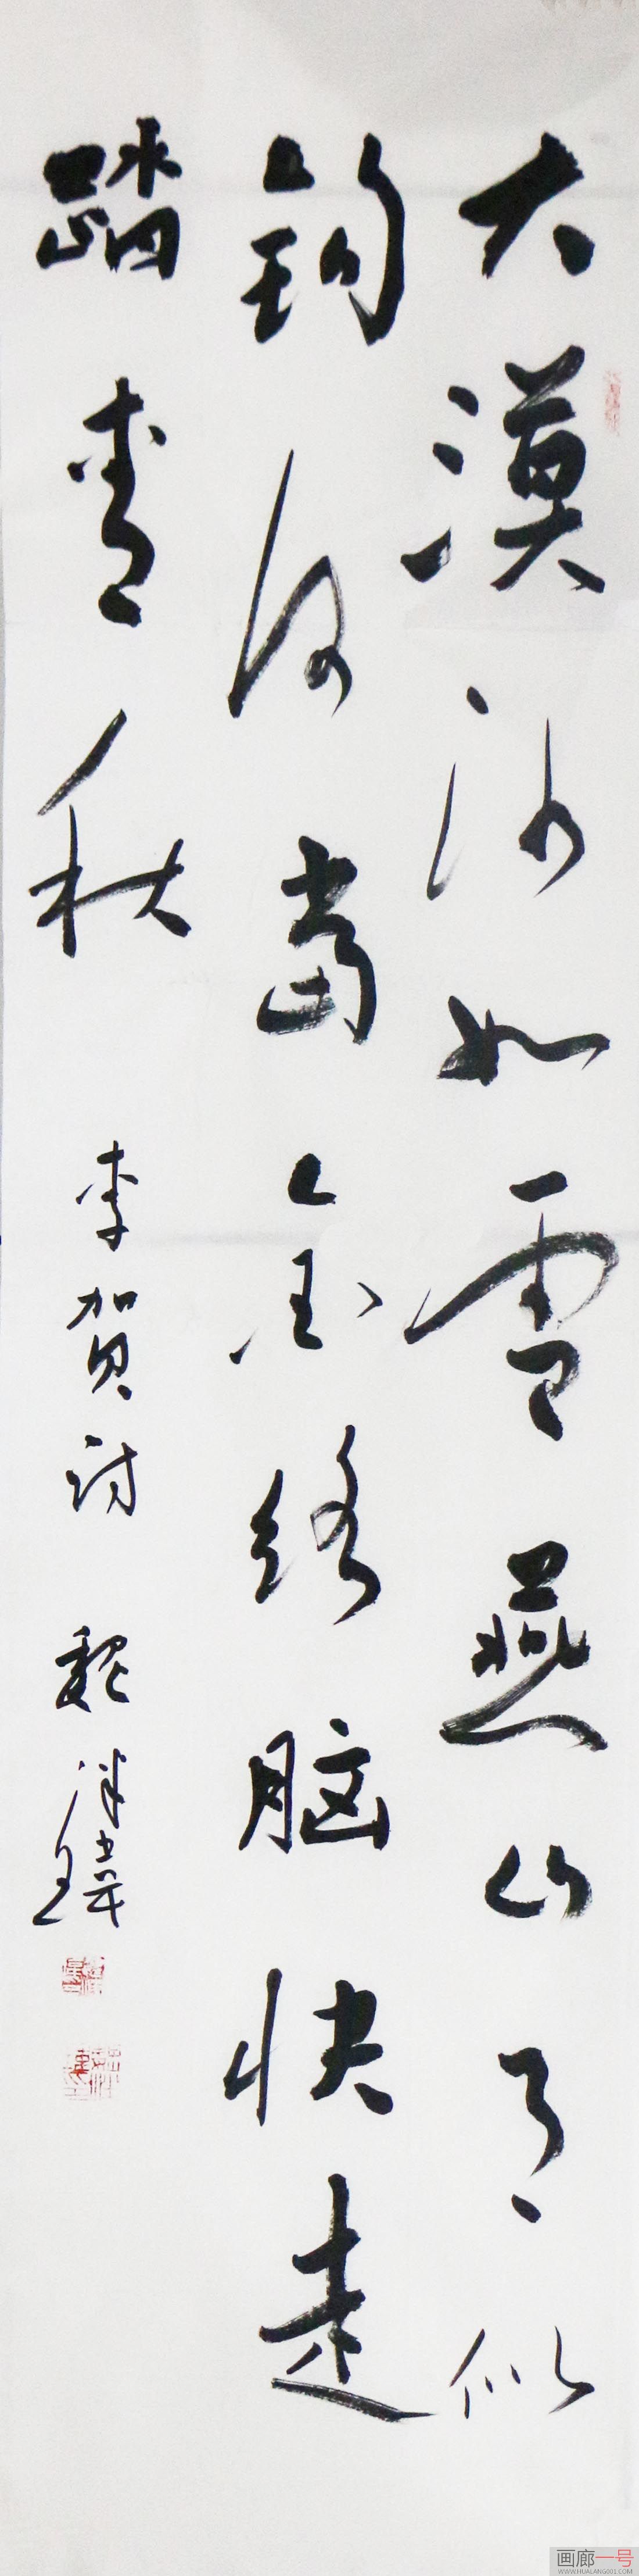 大漠沙如雪燕山月似
鈎何當金络脑快走
踏青秋 李賀诗 魏
画廊一号
WWW.HUALANG001.COM